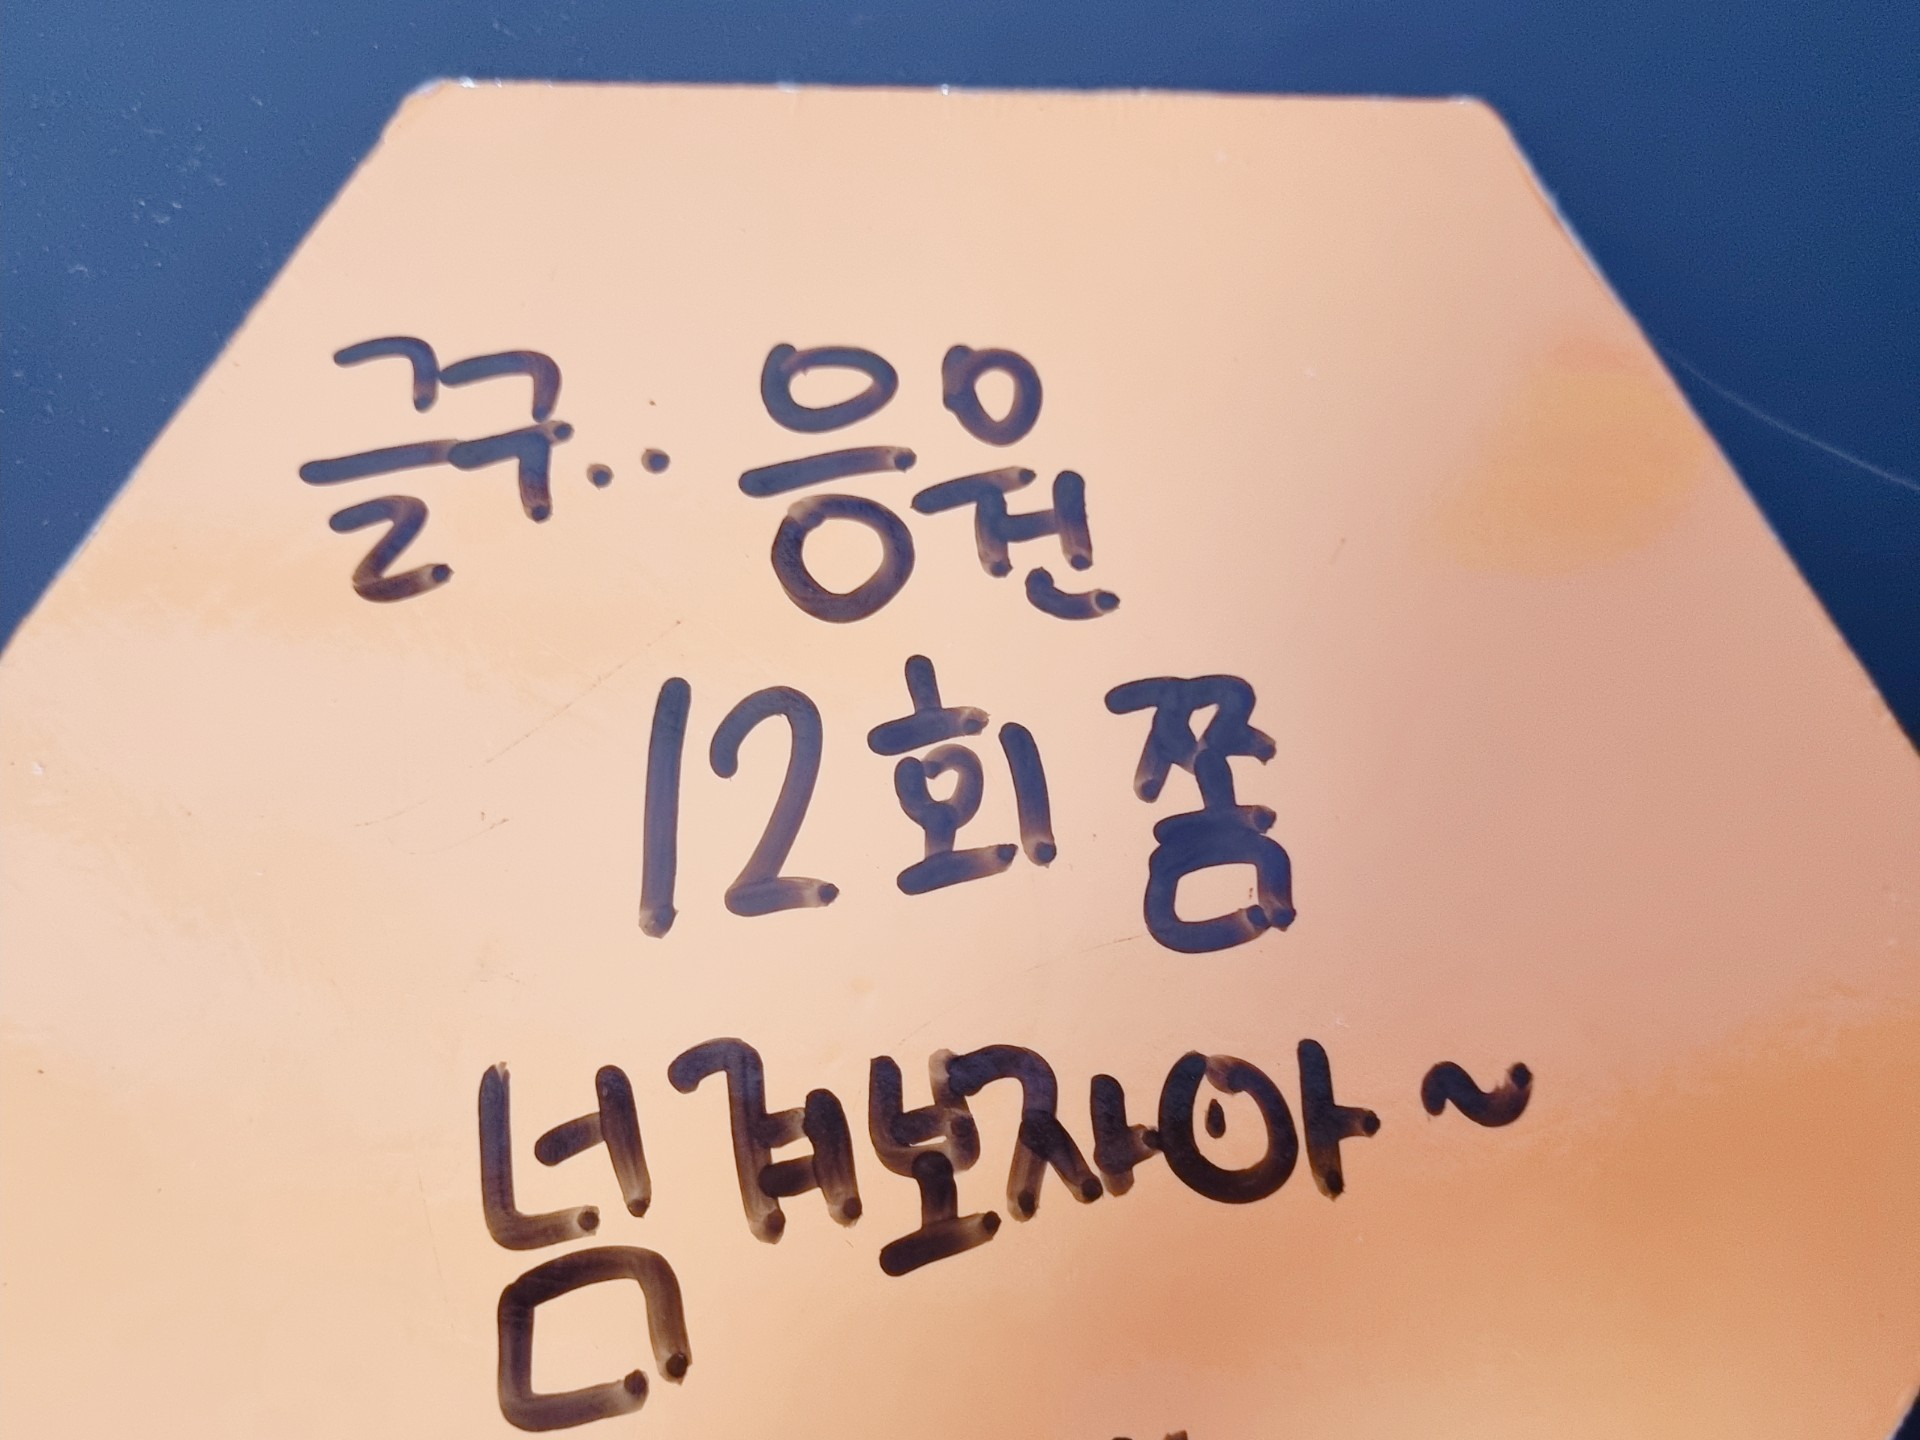 글구.. 응원
12회 쫌
넘겨보자아~